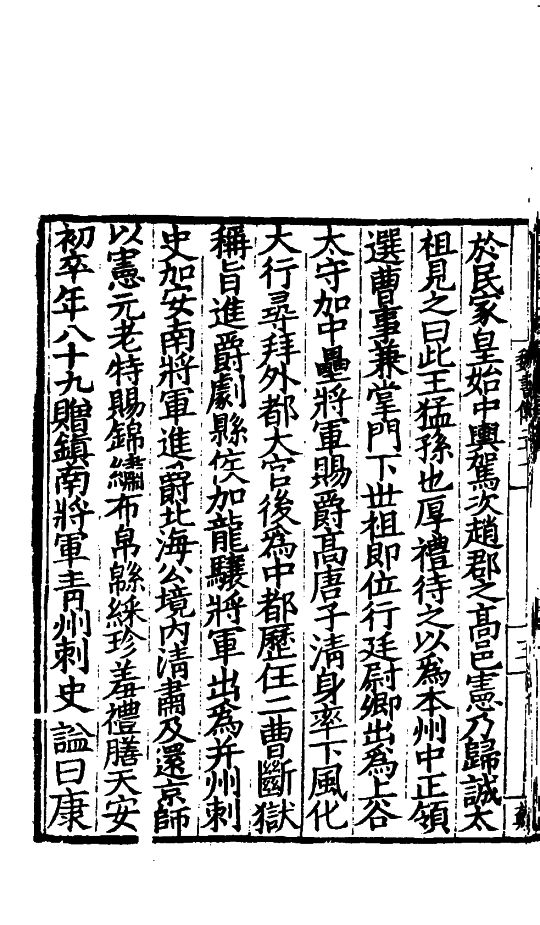 於民家皇始中輿駕次趙郡之髙邑憲乃歸誠太
祖見之曰此王猛孫也厚禮待之以爲本州中正領
選曹事兼掌門下世祖即位行廷尉卿出爲上谷
太守加中壘將軍賜爵髙唐子清身率下風化
大行尋拜外都大官後爲中都歷任二曹斷獄
稱旨進爵劇縣侯加龍驤將軍出爲并州刺
史加安南將軍進爵北海公境内清肅及還京師
以憲元老特賜錦繡布帛緜綵珍羞禮膳天安
初卒年八十九贈鎮南將軍青州刺史諡曰康